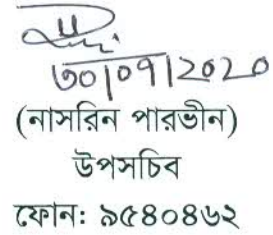 ৩০|০৭|২০২০
(নাসরিন পারভীন)
উপসচিব
ফোন: ৯৫৪০৪৬২